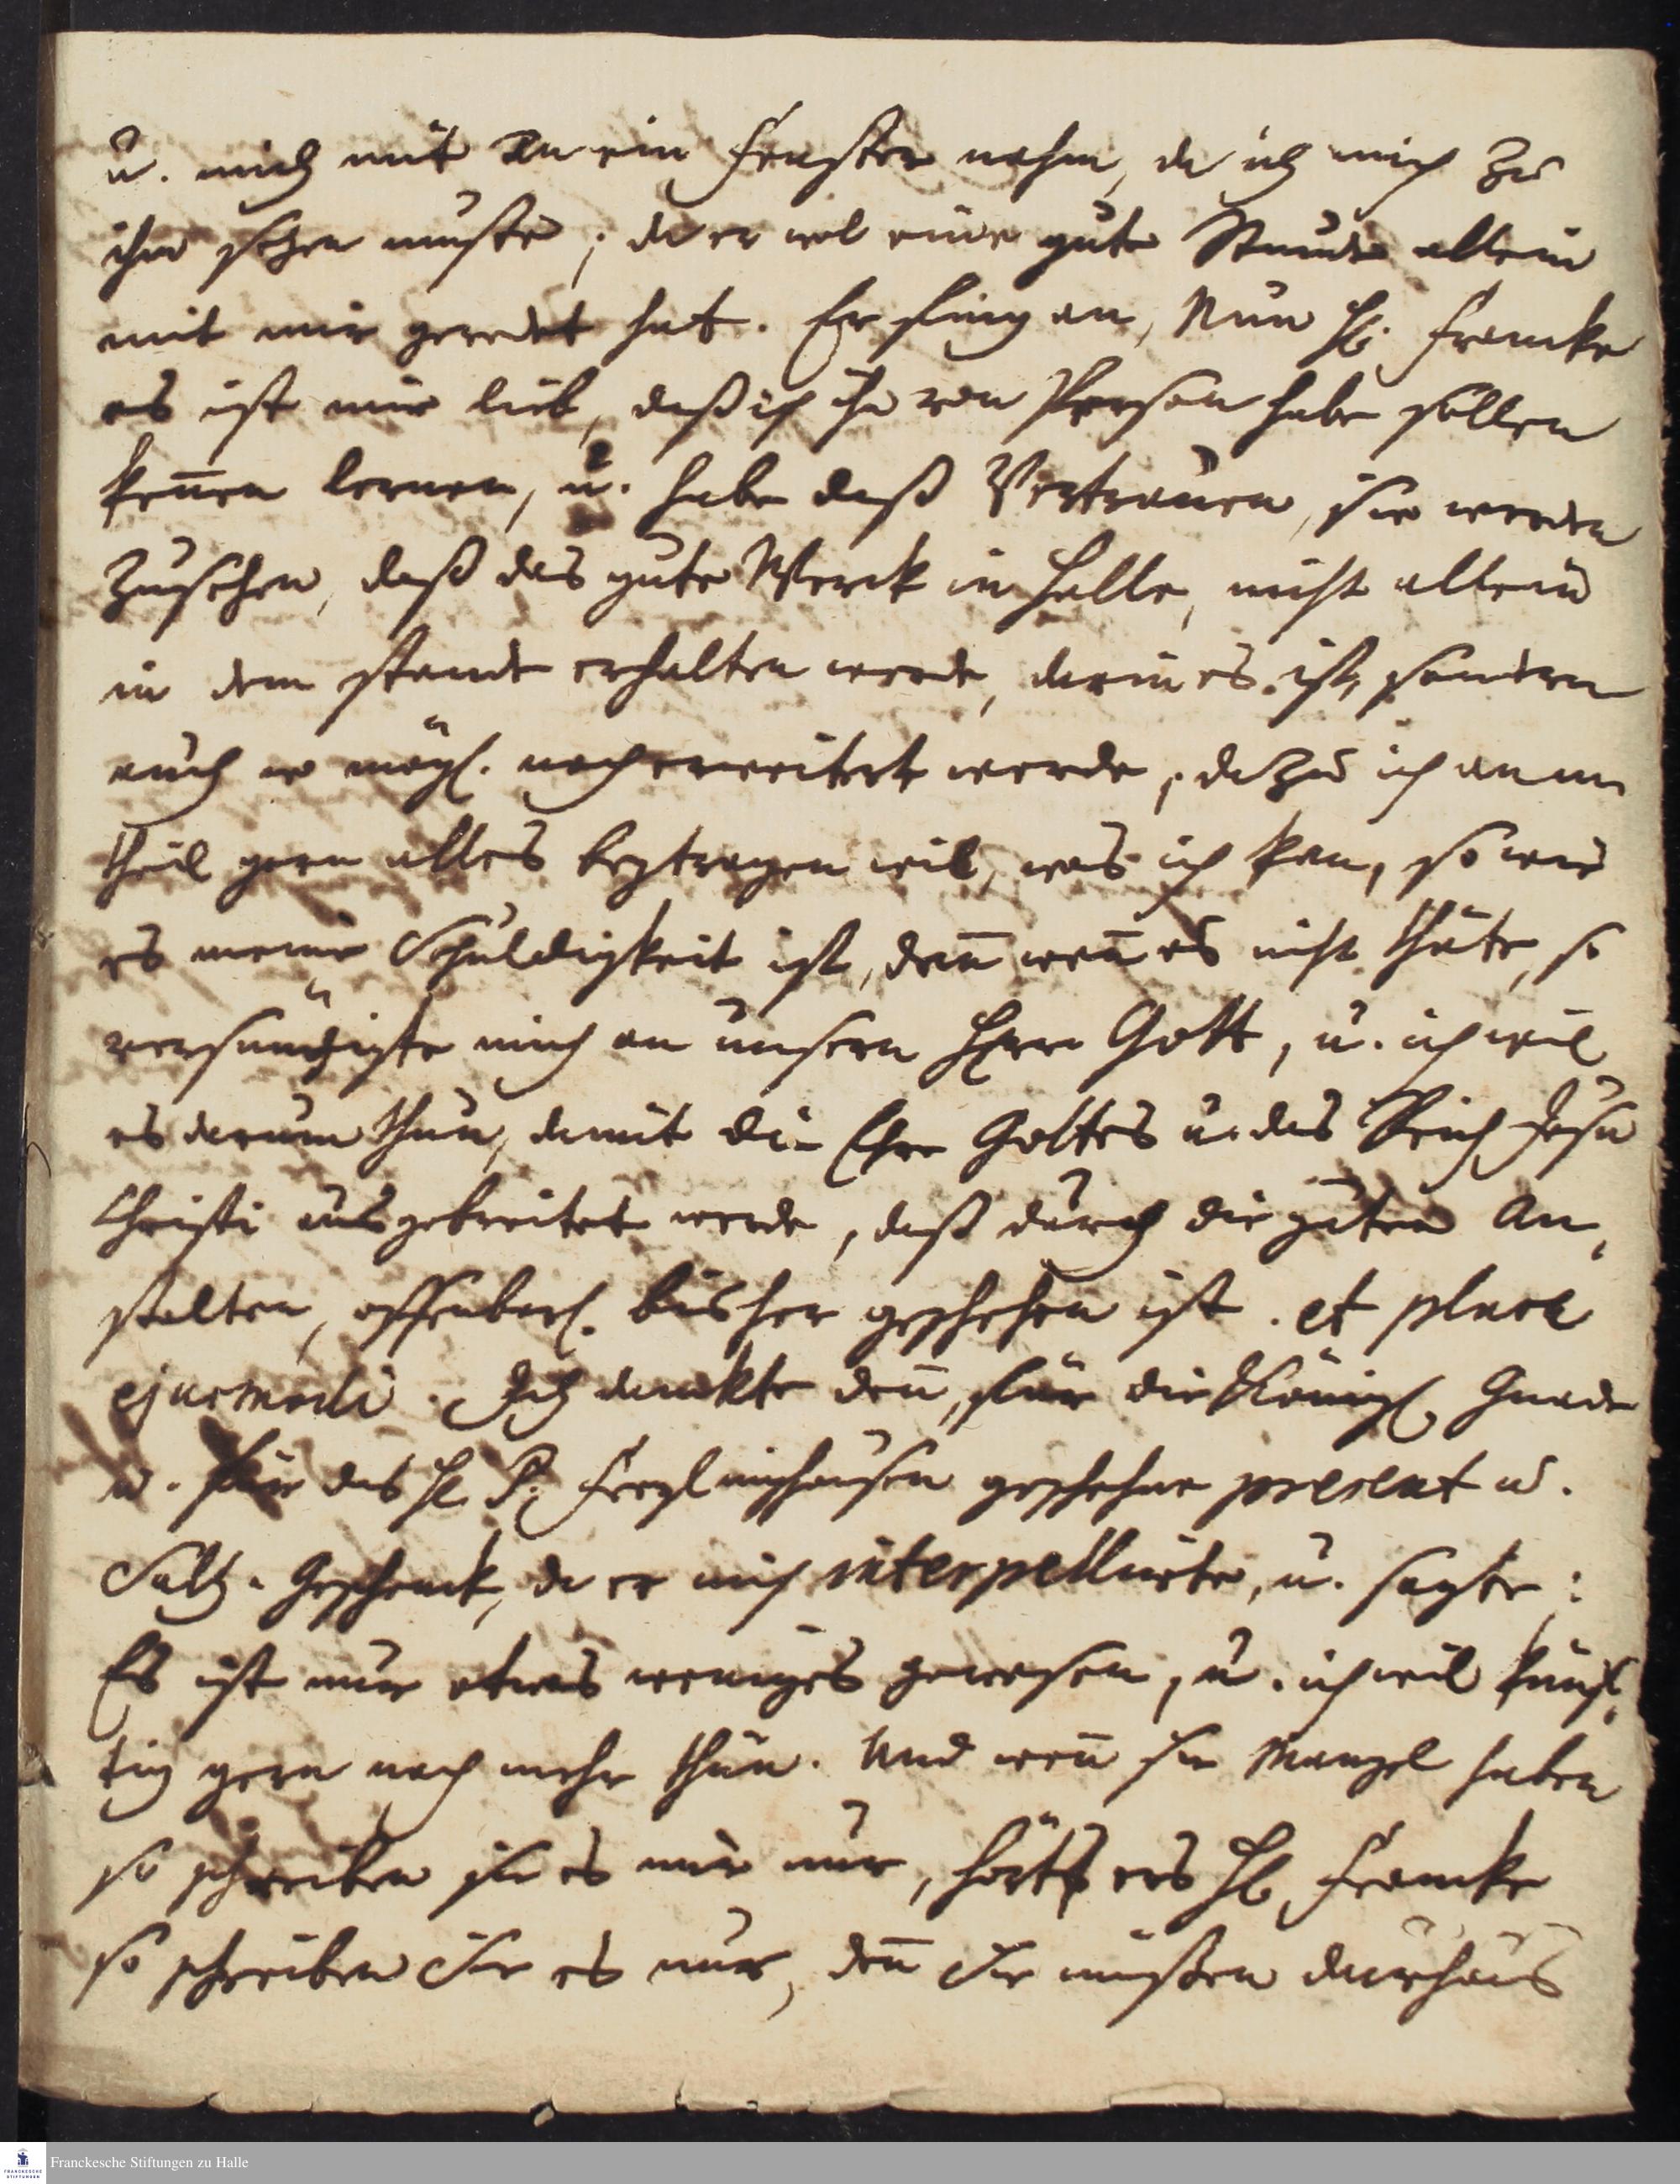 u. mich mit an ein Fenster nahm, da ich mich zu
ihm setzen muste; da er wol eine gute Stunde allein
mit mir geredet hat. Er fing an, Nun H. Francke
es ist mir lieb, daß ich ihn von Person habe sollen
kennen lernen, u. habe daß Vertrauen, sie werden
zusehen, daß das gute Werck in Halle, nicht allein
in dem stande erhalten werde, darin es ist, sondern
auch wo mögl. noch erweitert werde, dazu ich an m.
theil gern alles beytragen wil, was ich kan, so wie
es meine Schuldigkeit ist, denn wenn es nicht thäte, so
versündigte mich an unsern Herrn Gott, u. ich wil
es darum thun, damit die Ehre Gottes u. das Reich Jesu
Christi ausgebreitet werde, daß durch die guten An-
stalten, offenbarl. bisher geschehen ist. et plura
ejusmodi. Ich danckte denn, für die Königl. Gnade
u. für das H. P. Freylinghausen geschehene present u.
Saltz-Geschenck, da er mich interpellirte, u. sagte:
Es ist nur etwas weniges gewesen, u. ich wil künf-
tig gern noch mehr thun. Und wenn sie Mangel haben
so schreiben sie es mir nur, hört ers H. Francke
so schreiben Sie es nur, denn Sie müßen durchaus
Franckesche Stiftungen zu Halle
FRANCKESCHE
STIFTUNGEN